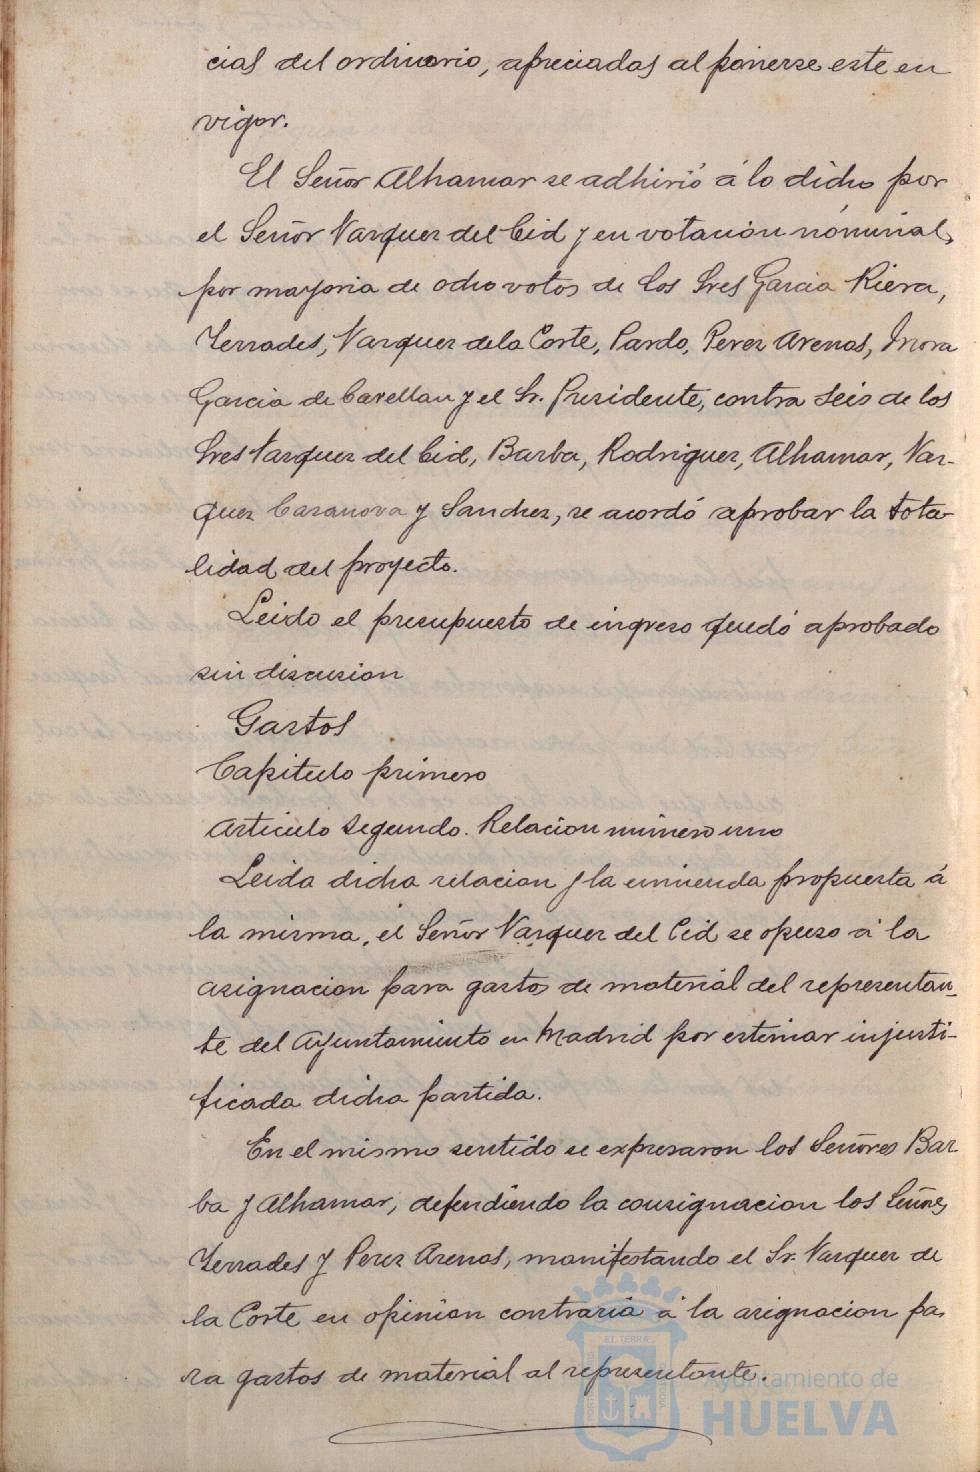 cial del ordinario, apreciadas al ponerse este en
vigor.
El Señor Alhamar se adhirió á lo dicho por
el Señor Vazquez del Cid y en votación nóminal,
por mayoria de ocho votos de los Sres Garcia Riera,
Terrades, Vazquez de la Corte, Pardo, Perez Arenas, Mora
Garcia de Cavellan y el Sr. Presidente, contra seis de los
Sres Vazquez del Cid, Barba, Rodriguez, Alhamar, Vaz-
quez Casanova y Sanchez, se acordó aprobar la tota-
lidad del proyecto.
Leido el presupuesto de ingreso quedó aprobado
sin discusion
Gastos
Capitulo primero
Articulo segundo. Relacion número uno
Leida dicha relacion y la enmienda propuesta á
la misma, el Señor Vazquez del Cid se opuso á la
asignacion para gastos de material del representan-
te del Ayuntamiento en Madrid por estimar injusti-
ficada dicha partida.
En el mismo sentido se expresaron los Señores Bar-
ba y Alhamar, defendiendo la consignacion los Señores
Terrades y Perez Arenas, manifestando el Sr. Vazquez de
la Corte en opinion contraria á la asignacion pa-
ra gastos de material al representante.
Ayuntamiento de
HUELVA